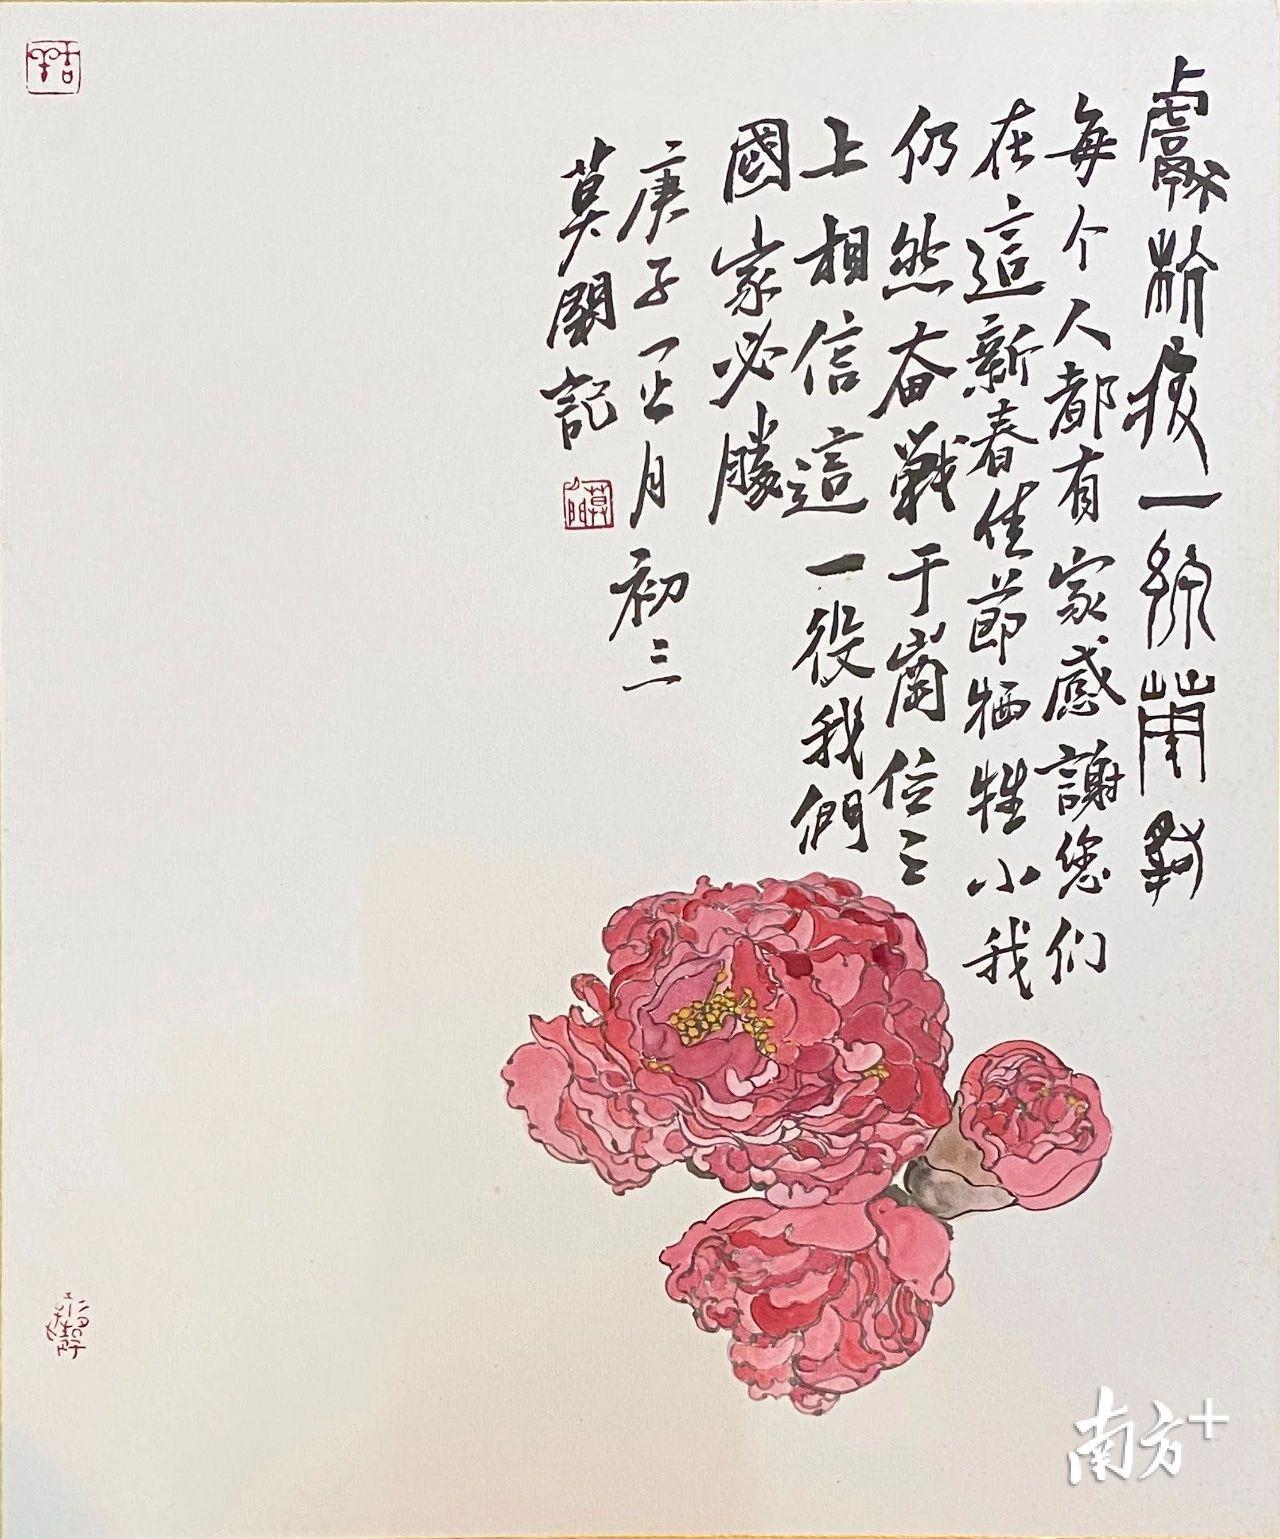 獻疫一線
每个人都有家感謝您们
在這新春佳節牺牲小我
仍然奋戰于崗位之
上相信這一役我們
國家必勝
庚子正月初三
莫記
南方+